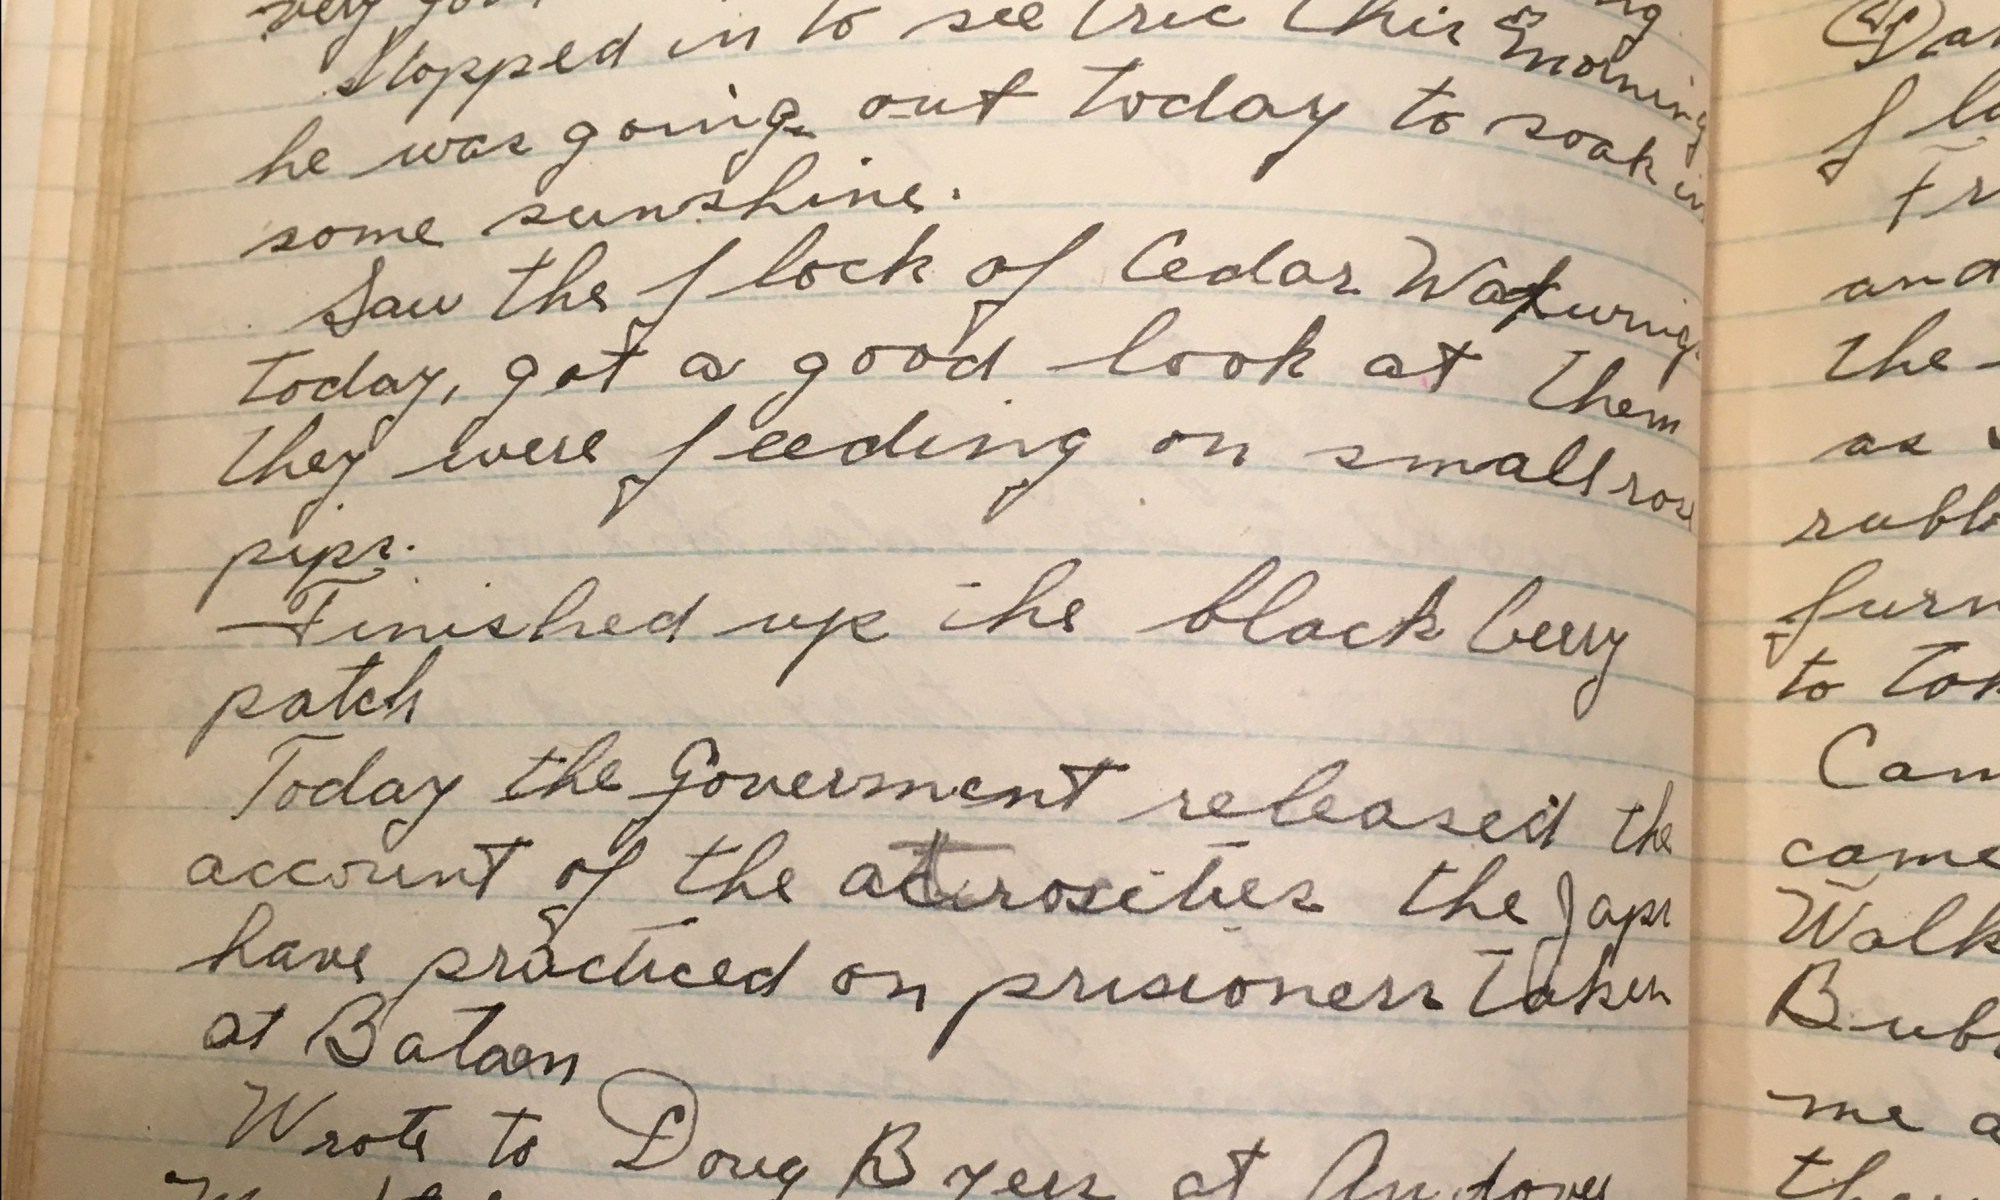 very
Stopped in to see Eric this morning
he was going out today to soak in
some sunshine.
Saw the flock of Cedar Waxwings
today, got a good look at them
they were feeding on small rose
pips.
Finished up the black berry
patch
Today the Goverment released the
account of the atrosities the Japs
have practiced on prisioners taken
at Bataan
Wrote to Doug Byers at Andover
(4) Dar
f
Fr
and
the
as
rubb
furn
to
Cam
came
Walk
Bub
me a